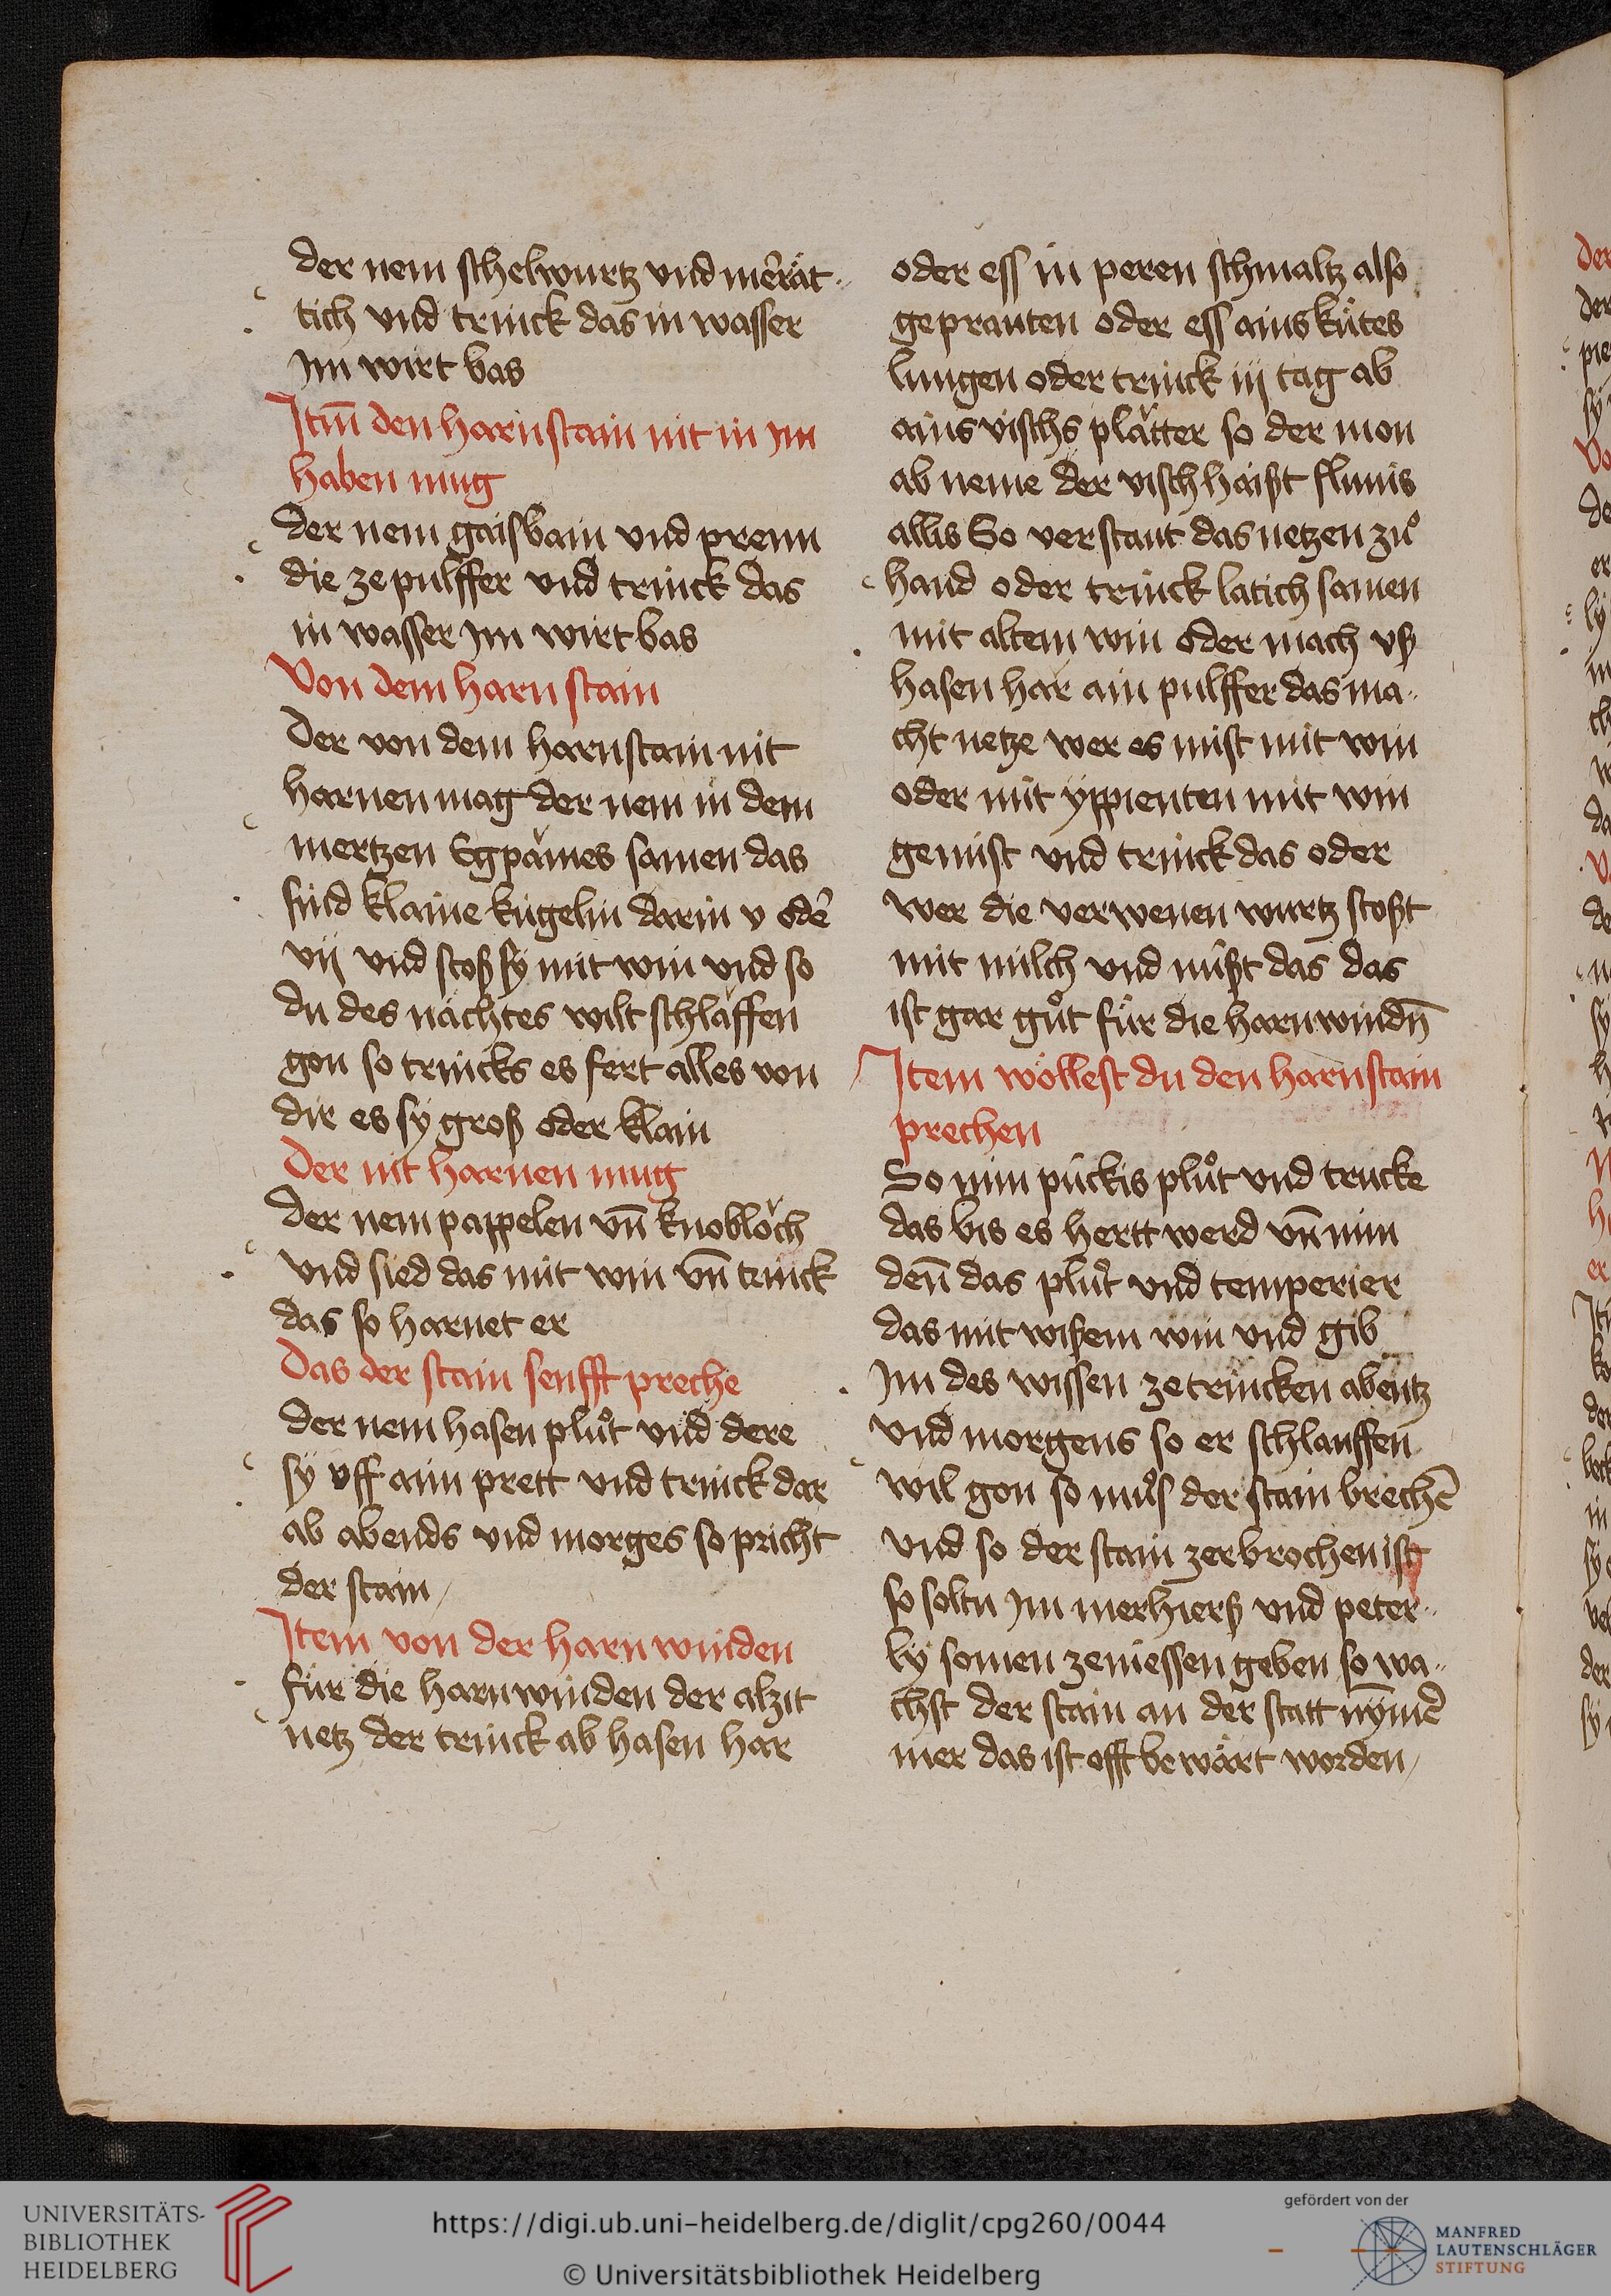 der nem schelwurtz vnd mer̄rät
tich vnd trinck das in wasser
Im wirt bas
Itm̄ den harnstain nit in Im
haben mug
der nem gaisbain vnd prenn
die ze pulffer vnd trinck das
in wasser Im wirt bas
Von dem harn stain
Der von dem harnstain nit
harnen mag der nem in dem
mertzen Egpämes samen das
sind klaine kügelin darin v odē
vij vnd stoß sy mit win vnd so
du des nächtes wilt schläffen
gon so trincks es fert alles von
dir es sy groß oder klain
Der nit harnen mug
Der nem pappelen vn̄ knobloch
vnd sied das mit win vn̄ trinck
das so harnet er
Das der stain senfft preche
Der nem hasen plůt vnd dere
sy vff aim prett vnd trinck dar
ab abends vnd morges so pricht
der stain
Item von der harn winden
für die harnwinden der alzit
netz der trinck ab hasen har
oder ess in peren schmaltz also
gepranten oder ess ains kütes
lungen oder trinck iij tag ab
ains vischs plätter so der mon
ab neme der visch haißt flunis
allis So verstant das netzen zů
hand oder trinck latich samen
mit altem win oder mach vß
hasen har ain pulffer das ma
cht netze wer es mist mit win
oder mit yppienten mit win
gemist vnd trinck das oder
wer die verwenen wurtz stoßt
mit milch vnd nüßt das das
ist gar gůt für die harnwindn̄
Item wöllest du den harnstain
prechen
So nim pückis plůt vnd trucke
das bis es hertt werd vn̄ nim
den̄ das plůt vnd temperier
das mit wißem win vnd gib
Im des wissen ze trincken abentz
vnd morgens so er schlauffen
wil gon so můs der stain brechē
vnd so der stain zerbrochen ist
so soltu Im merhierß vnd peter
ly somen ze niessen geben so wa
chst der stain an der statt nymē
mer das ist offt bewärt worden
UNIVERSITÄTS-
BIBLIOTHEK
HEIDELBERG
https://digi.ub.uni-heidelberg.de/diglit/cpg260/0044
© Universitätsbibliothek Heidelberg
gefördert von der
MANFRED
LAUTENSCHLÄGER
STIFTUNG